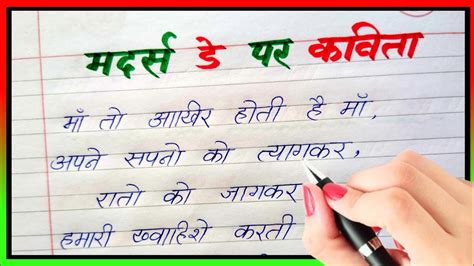 मदर्स डे पर कविता
माँ तो आखिर होती है माँ,
अपने सपनो को त्यागकर,
रातो को जागकर
हमारी ख्वाहिशे करती